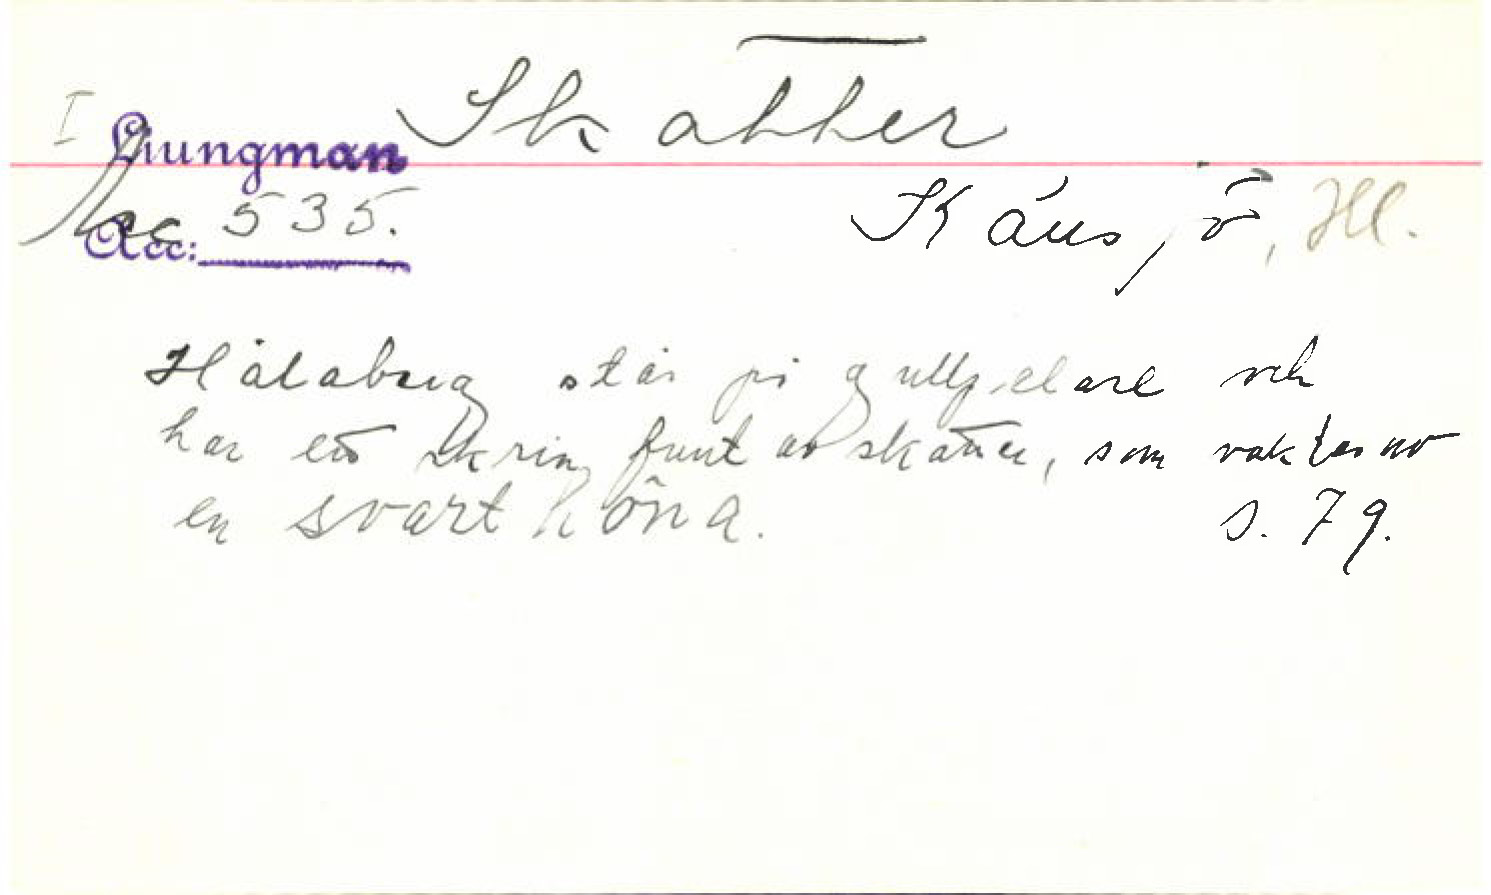 Skatter
I Ljungman
Acc 535.
Acc:
Känsjö, Hl.
Hålaberg står på gullpelare och
har ett skrin fullt av skatter, som vaktas av
en svart höna. s. 79.